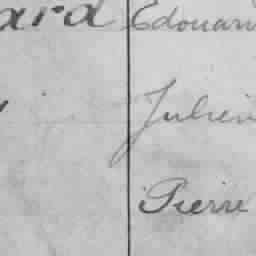 ard Edouard
Julien
Pierre